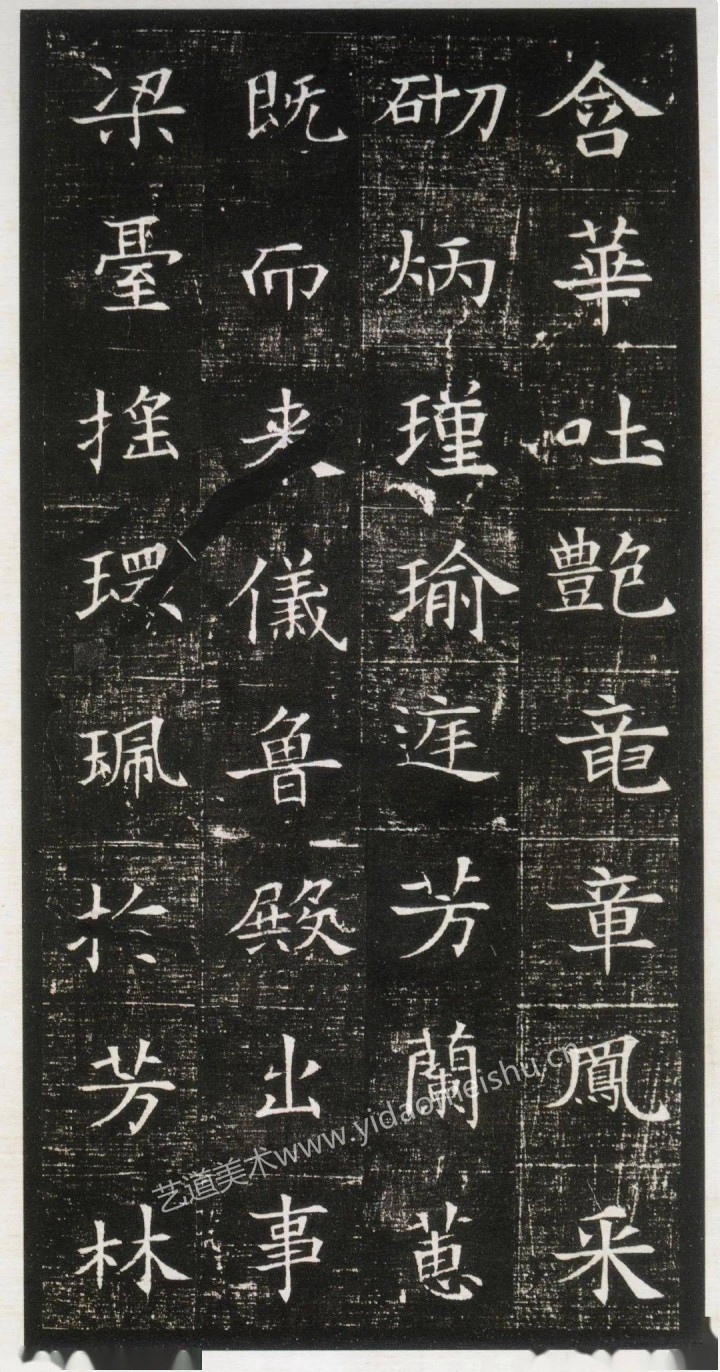 含華吐艷竜章鳳采
砌炳瑾瑜庭芳蘭蕙
既而来儀魯殿出事
梁臺搖環珮於芳林
艺道美术www.yidaomeishu.cn